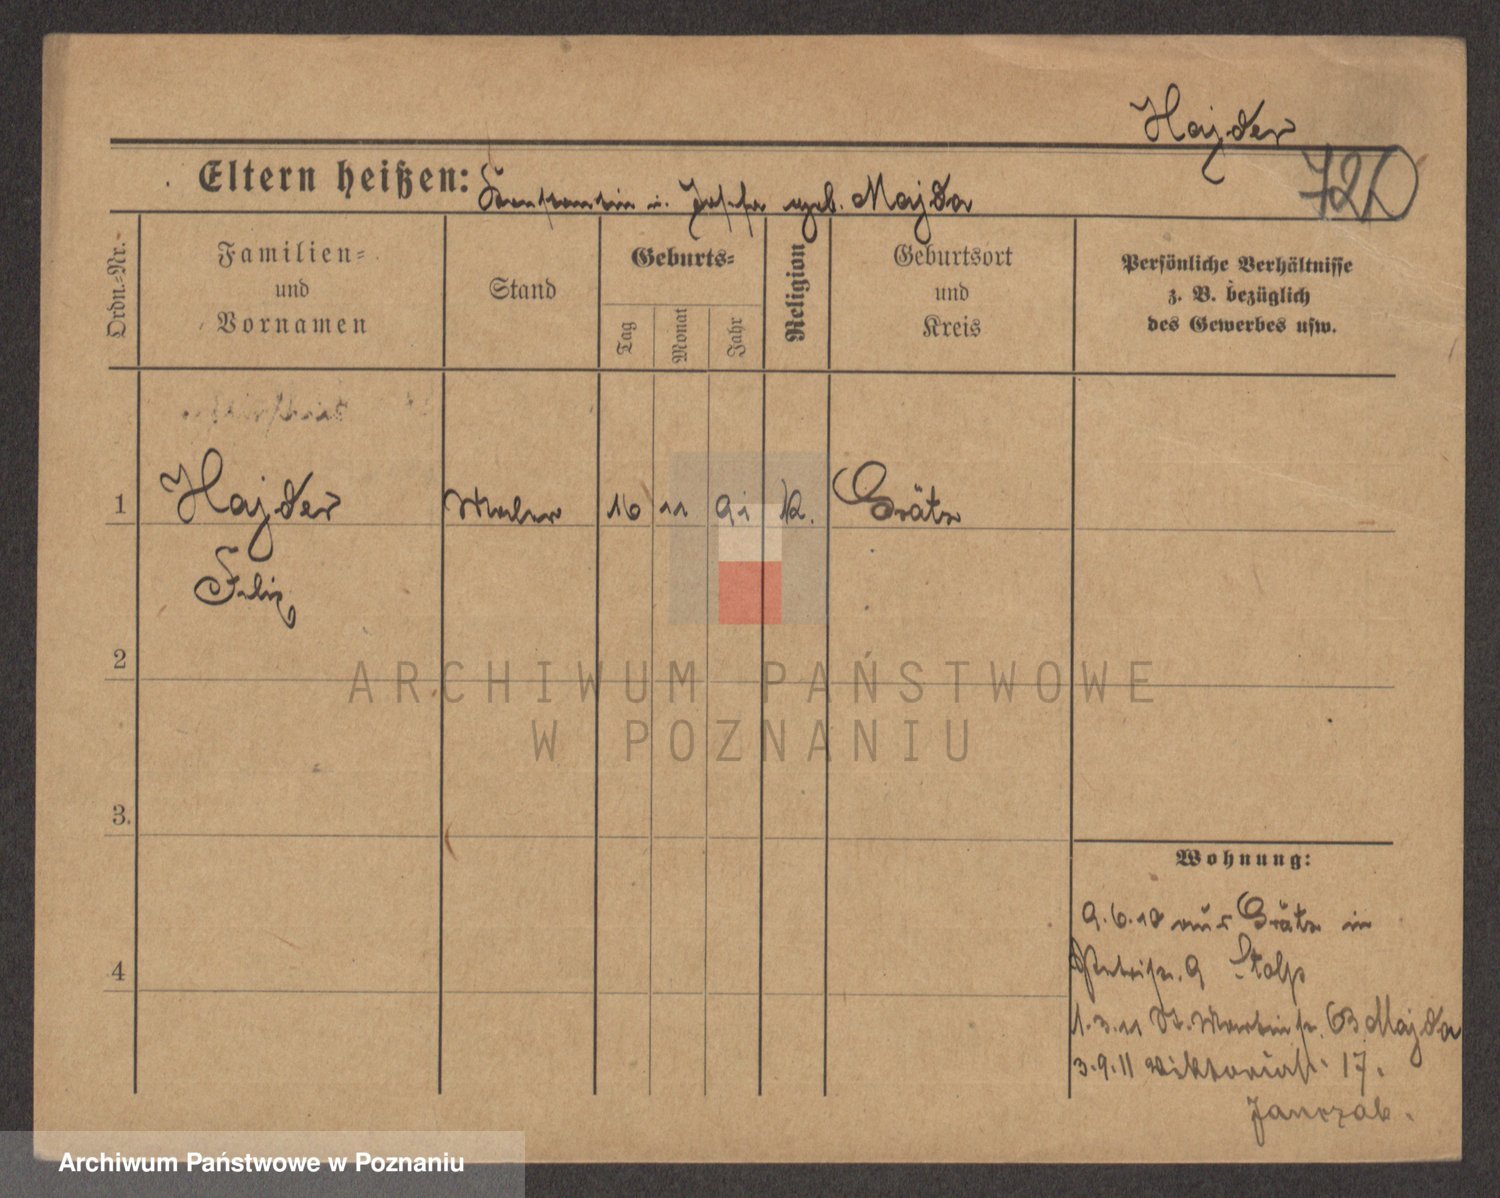 Hajder
Eltern heißen: Konstantin u. Josefa geb. Majda
72
Ordn.-Nr.
Familien-
und
Vornamen
Stand
Geburts-
Tag
Monat
Jahr
Religion
Geburtsort
und
Kreis
Persönliche Verhältnisse
z. B. bezüglich
des Gewerbes usw.
1 Hajder Maler 16 11 91 K. Grätz
Felix
2
3.
4
ARCHIWUM PAŃSTWOWE
W POZNANIU
Wohnung:
9.6.10 aus Grätz in
9 Stolp
1.3.11 St. Martinstr. 63 Majda
3.9.11 Viktoriastr. 17.
Janczak.
Archiwum Państwowe w Poznaniu